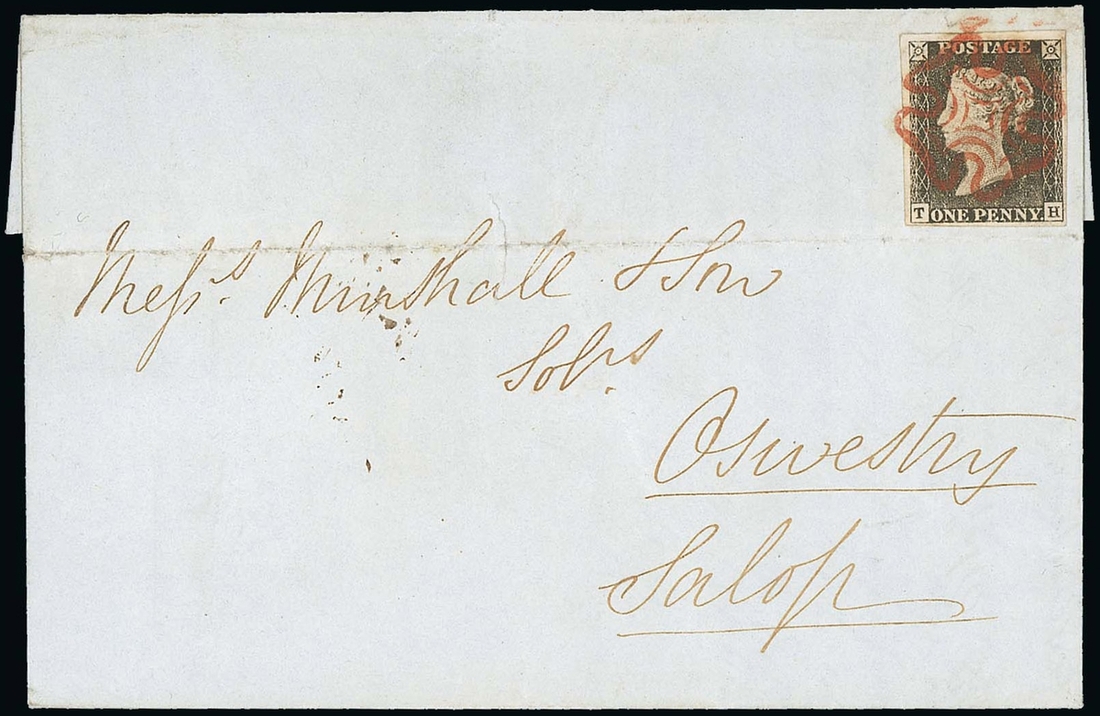 POSTAGE
T ONE PENNY H
Messrs. Minshall & Son
Solrs.
Oswestry
Salop